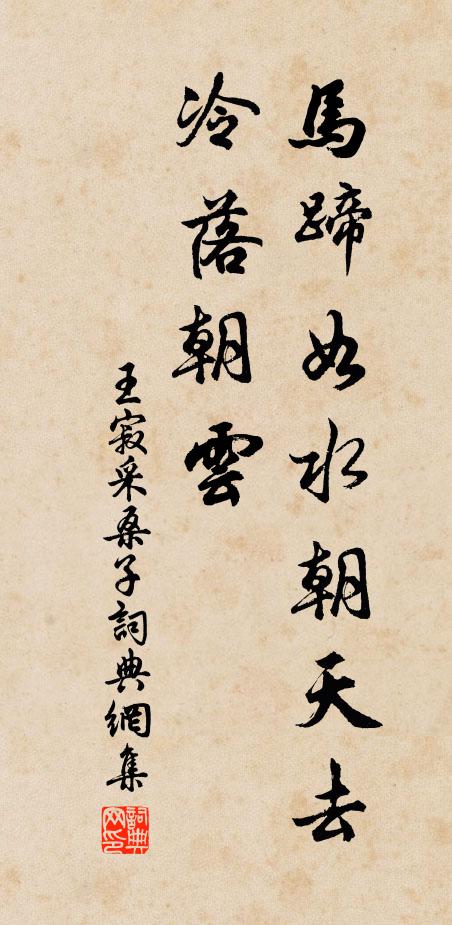 馬蹄如水朝天去
冷落朝雲
王寂采桑子詞典網集
詞典网印